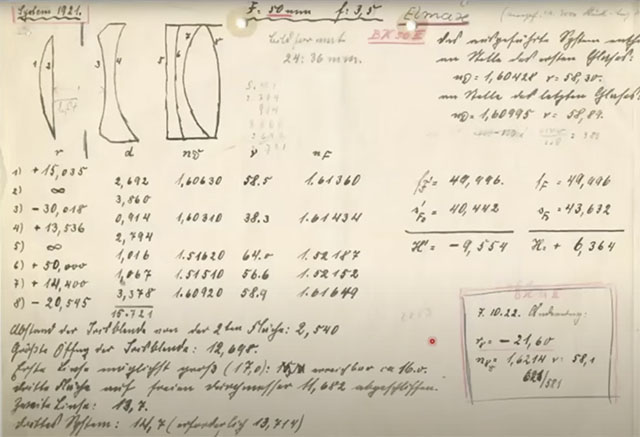 System 1921.
F: 50 mm f: 3,5
Elmax
BK 50 I
Bildformat
24:36 mm.
Das ausgeführte System enth.
an Stelle des ersten Glases:
nD = 1,60428 v = 58,30.
an Stelle des letzten Glases:
nD = 1,60995 v = 58,89.
1 2 3 4 5 6 7 8
r d nD ν nF
1) + 15,035
2,692 1.60630 58.5 1.61360
2) ∞
3,860
3) - 30,018
0,914 1.60310 38.3 1.61434
4) + 13,536
2,794
5) ∞
1,016 1.51620 64.0 1.52187
6) + 50,000
1,067 1.51510 56.6 1.52152
7) + 14,400
3,378 1.60920 58.9 1.61649
8) - 20,545
15.721
= 49,996. = 49,996
= 40,442 = 43,632
H' = - 9,554 H = + 6,364
Abstand der Irisblende von der 2ten Fläche: 2,540
Größte Öffng der Irisblende: 12,698.
Erste Linse möglichst groß (17,0): erreichbar ca 16.0.
dritte Fläche auf freien Durchmesser 11,682 abgeschliffen.
Zweite Linse: 13,7.
drittes System: 14,7 (erforderlich 13,714)
7.10.22. Änderung:
= - 21,60
= 1,6214 v: 58,1
/581